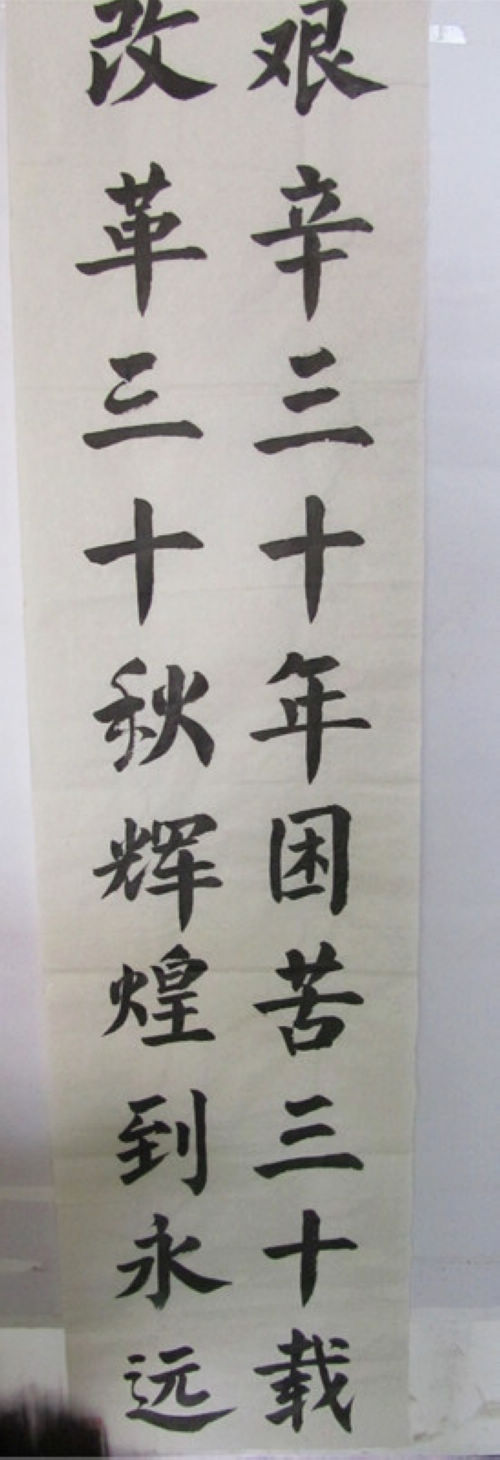 艰辛三十年困苦三十载
改革三十秋辉煌到永远